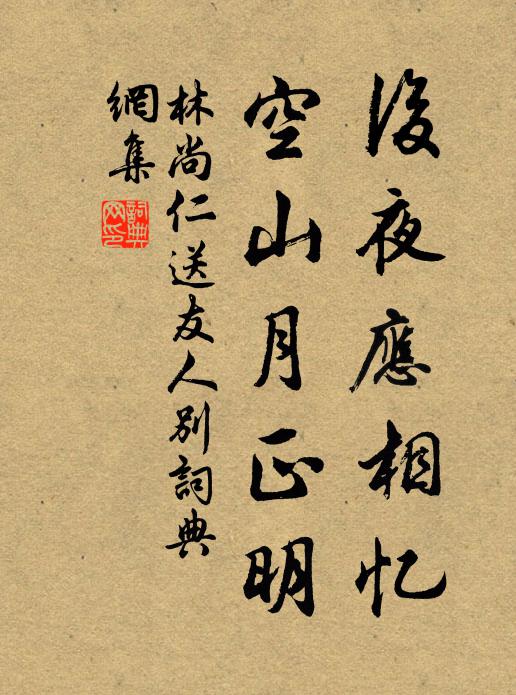 後夜應相忆
空山月正明
林尚仁送友人别詞典
網集
詞典網印